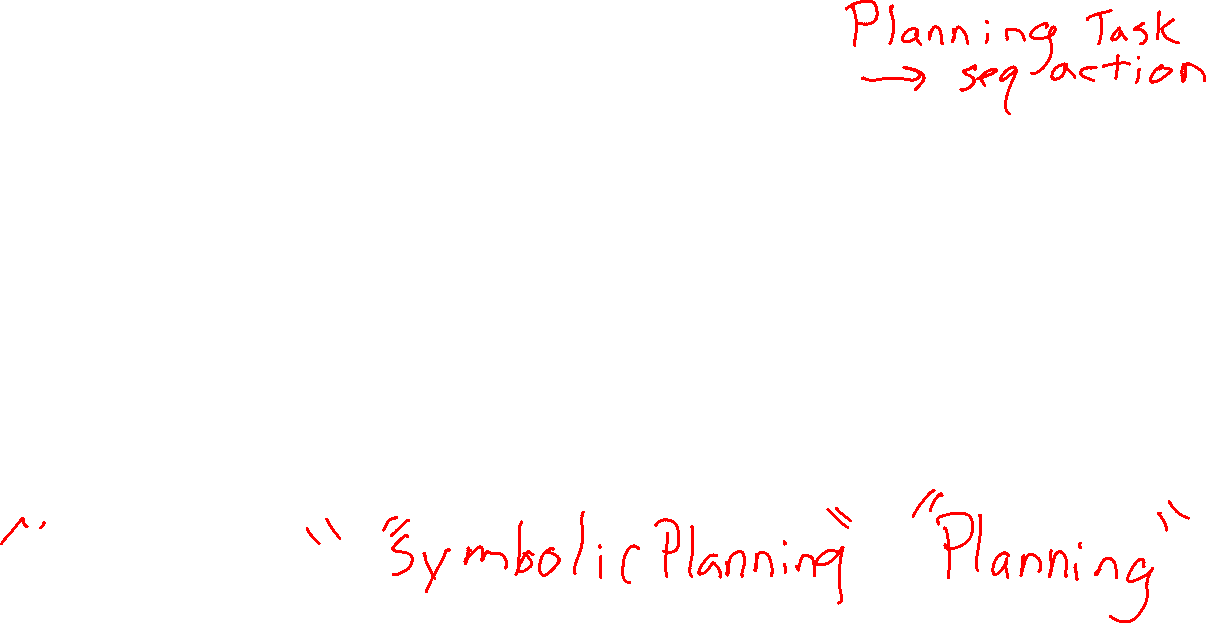 Planning Task
→ seq action
" " "Symbolic Planning" "Planning"